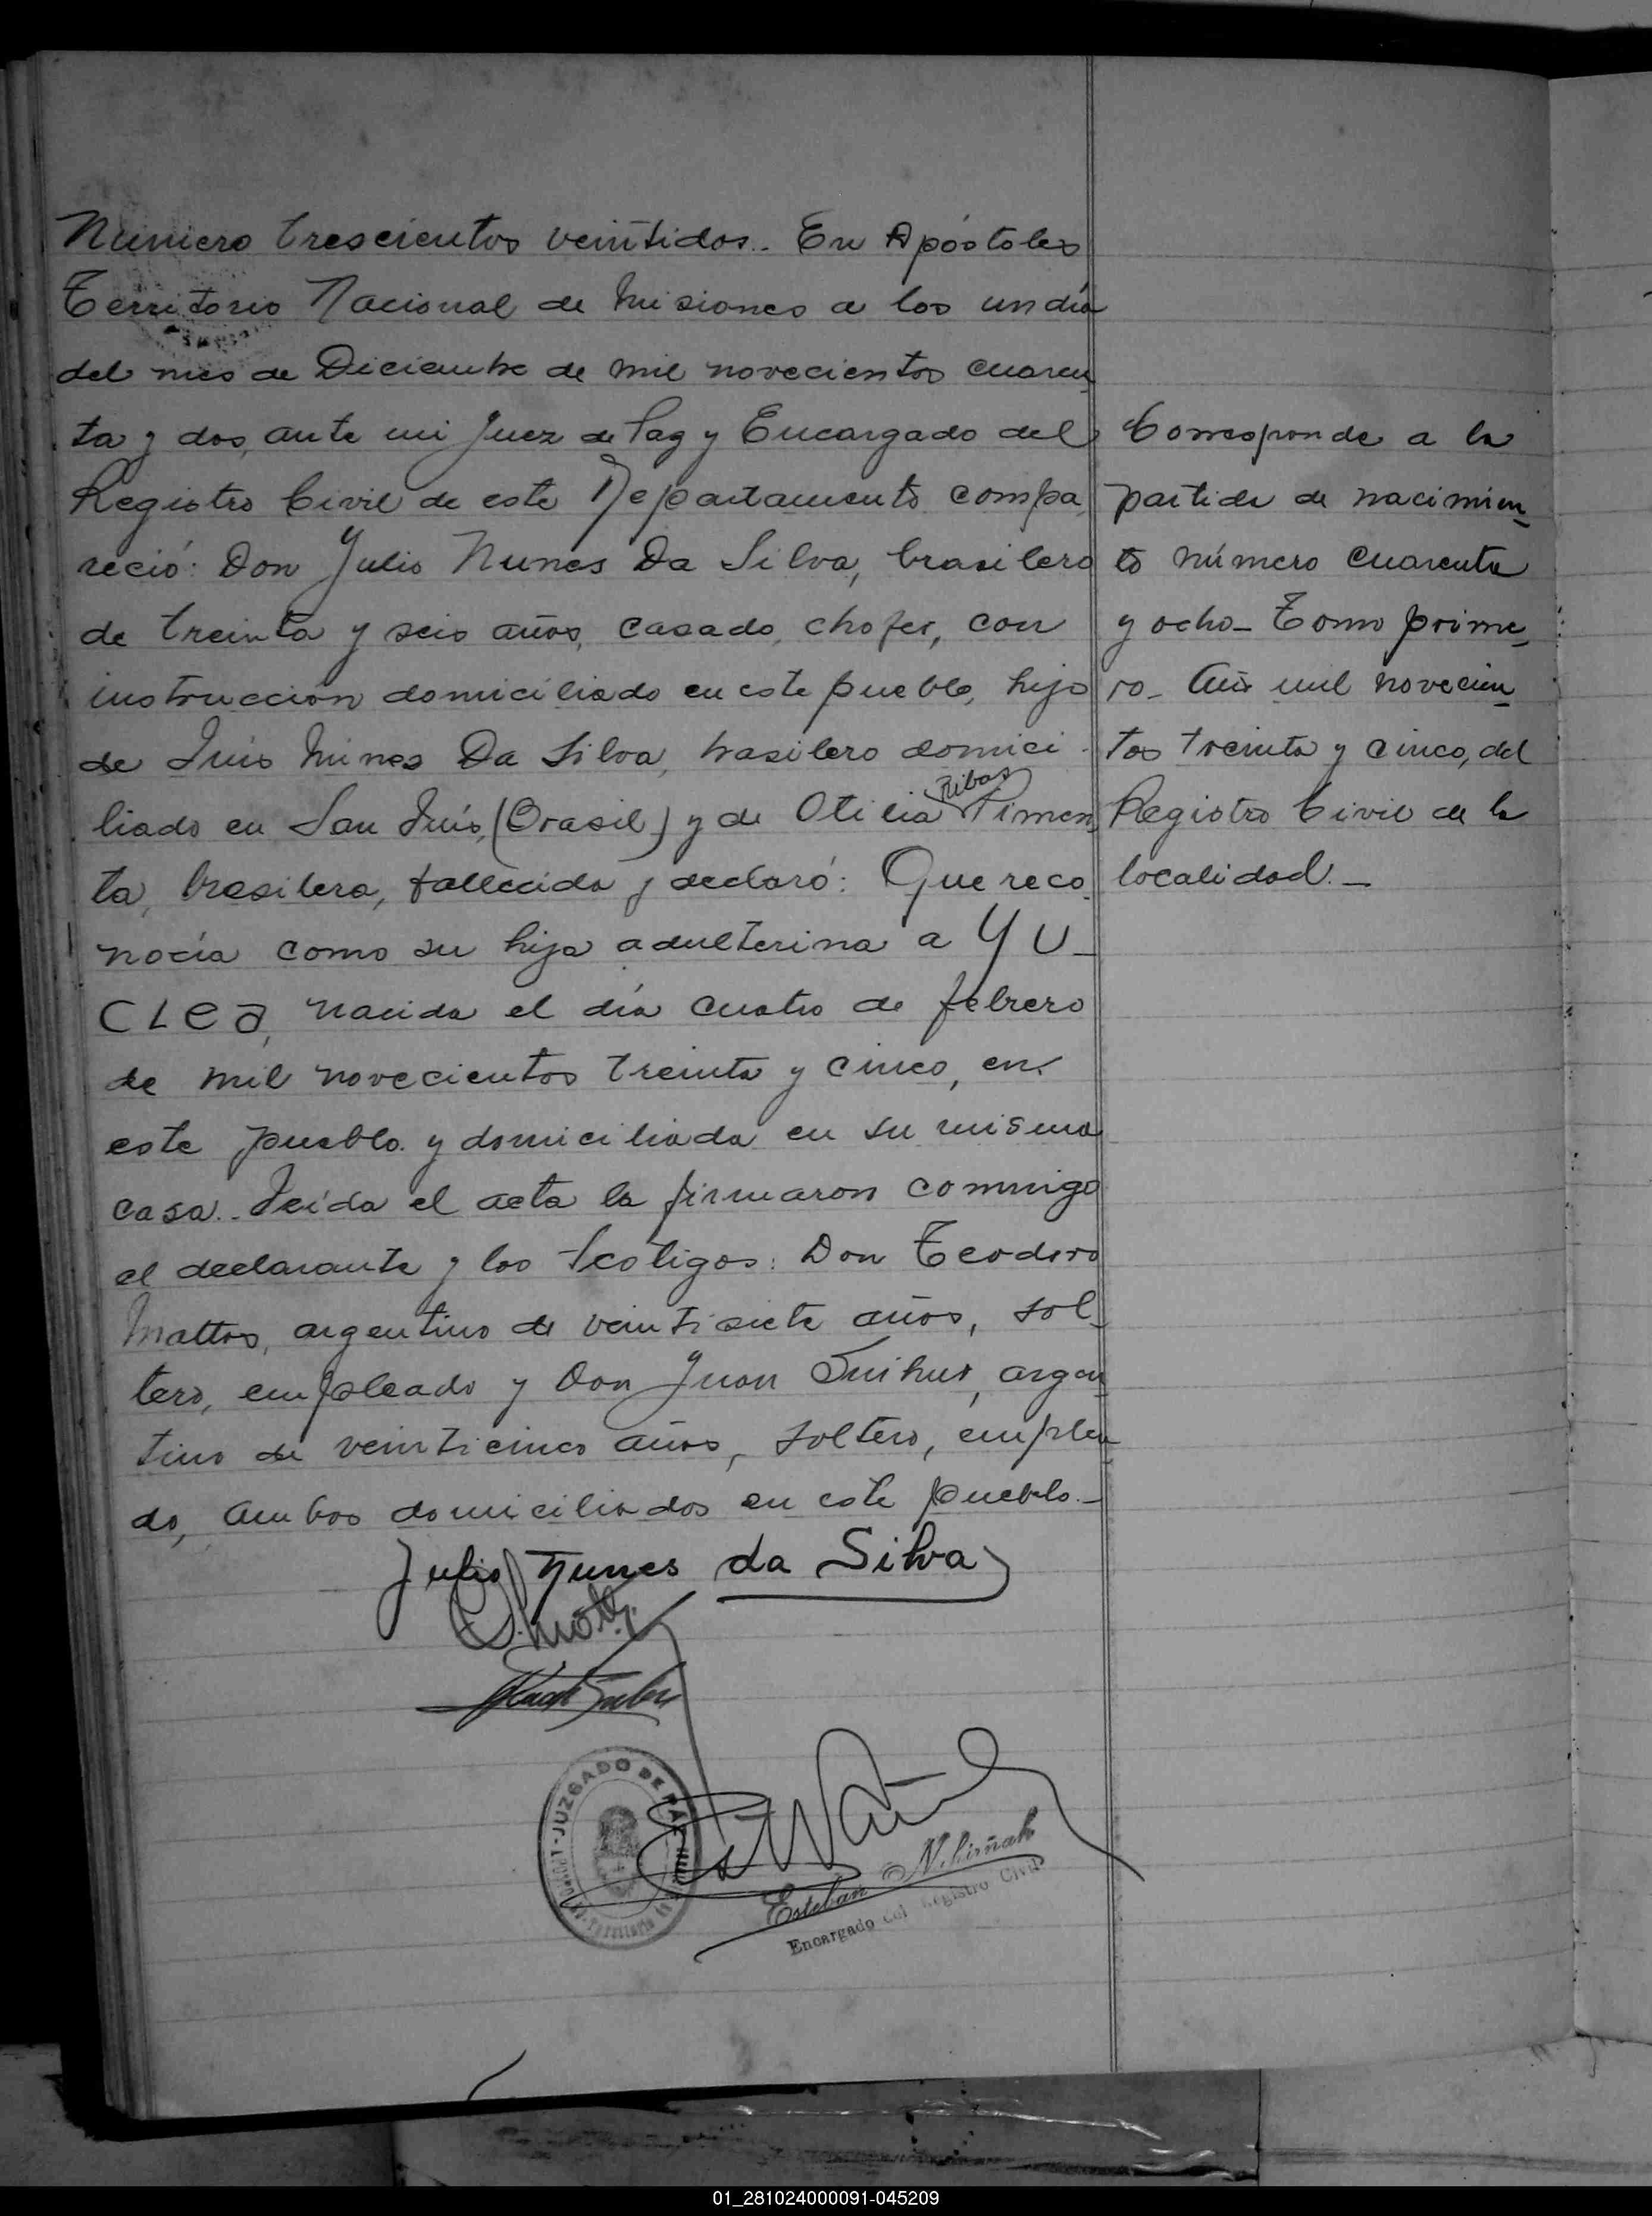 Número trescientos veintidos.. En Apóstoles
Territorio Nacional de Misiones a los un día
del mes de Diciembre de mil novecientos cuaren
ta y dos, ante mi Juez de Paz y Encargado del
Registro Civil de este Departamento compa
reció: Don Julio Nunes Da Silva, brasilero
de treinta y seis años, casado, chofer, con
instrucción domiciliado en este pueblo, hijo
de Luis Nunes Da Silva, brasilero domici-
liado en San Luis, (Brasil) y de Otilia Ribas Pimen
ta, brasilera, fallecida y declaró: Que reco
nocía como su hija adulterina a YU-
CLEA, nacida el día cuatro de febrero
de mil novecientos treinta y cinco, en
este pueblo y domiciliada en su misma
casa.. Leída el acta la firmaron conmigo
el declarante y los testigos: Don Teodoro
Mattos, argentino de veintisiete años, sol-
tero, empleado y Don Juan argen
tino de veinticinco años, soltero, emplea
do, ambos domiciliados en este pueblo.-
Corresponde a la
partida de nacimien-
to número cuarenta
y ocho- Tomo prime-
ro- Año mil novecien-
tos treinta y cinco, del
Registro Civil de la
localidad.-
Julio Nunes da Silva
JUZGADO DE PAZ
Esteban N.
Encargado del Registro Civil
01_281024000091-045209